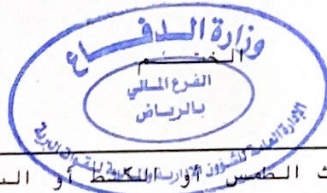 وزارة الدفاع
الختم
الفرع المالي
بالرياض
الإدارة العامة للشؤون الإدارية والمالية للقوات البرية
الطمس أو الكشط أو